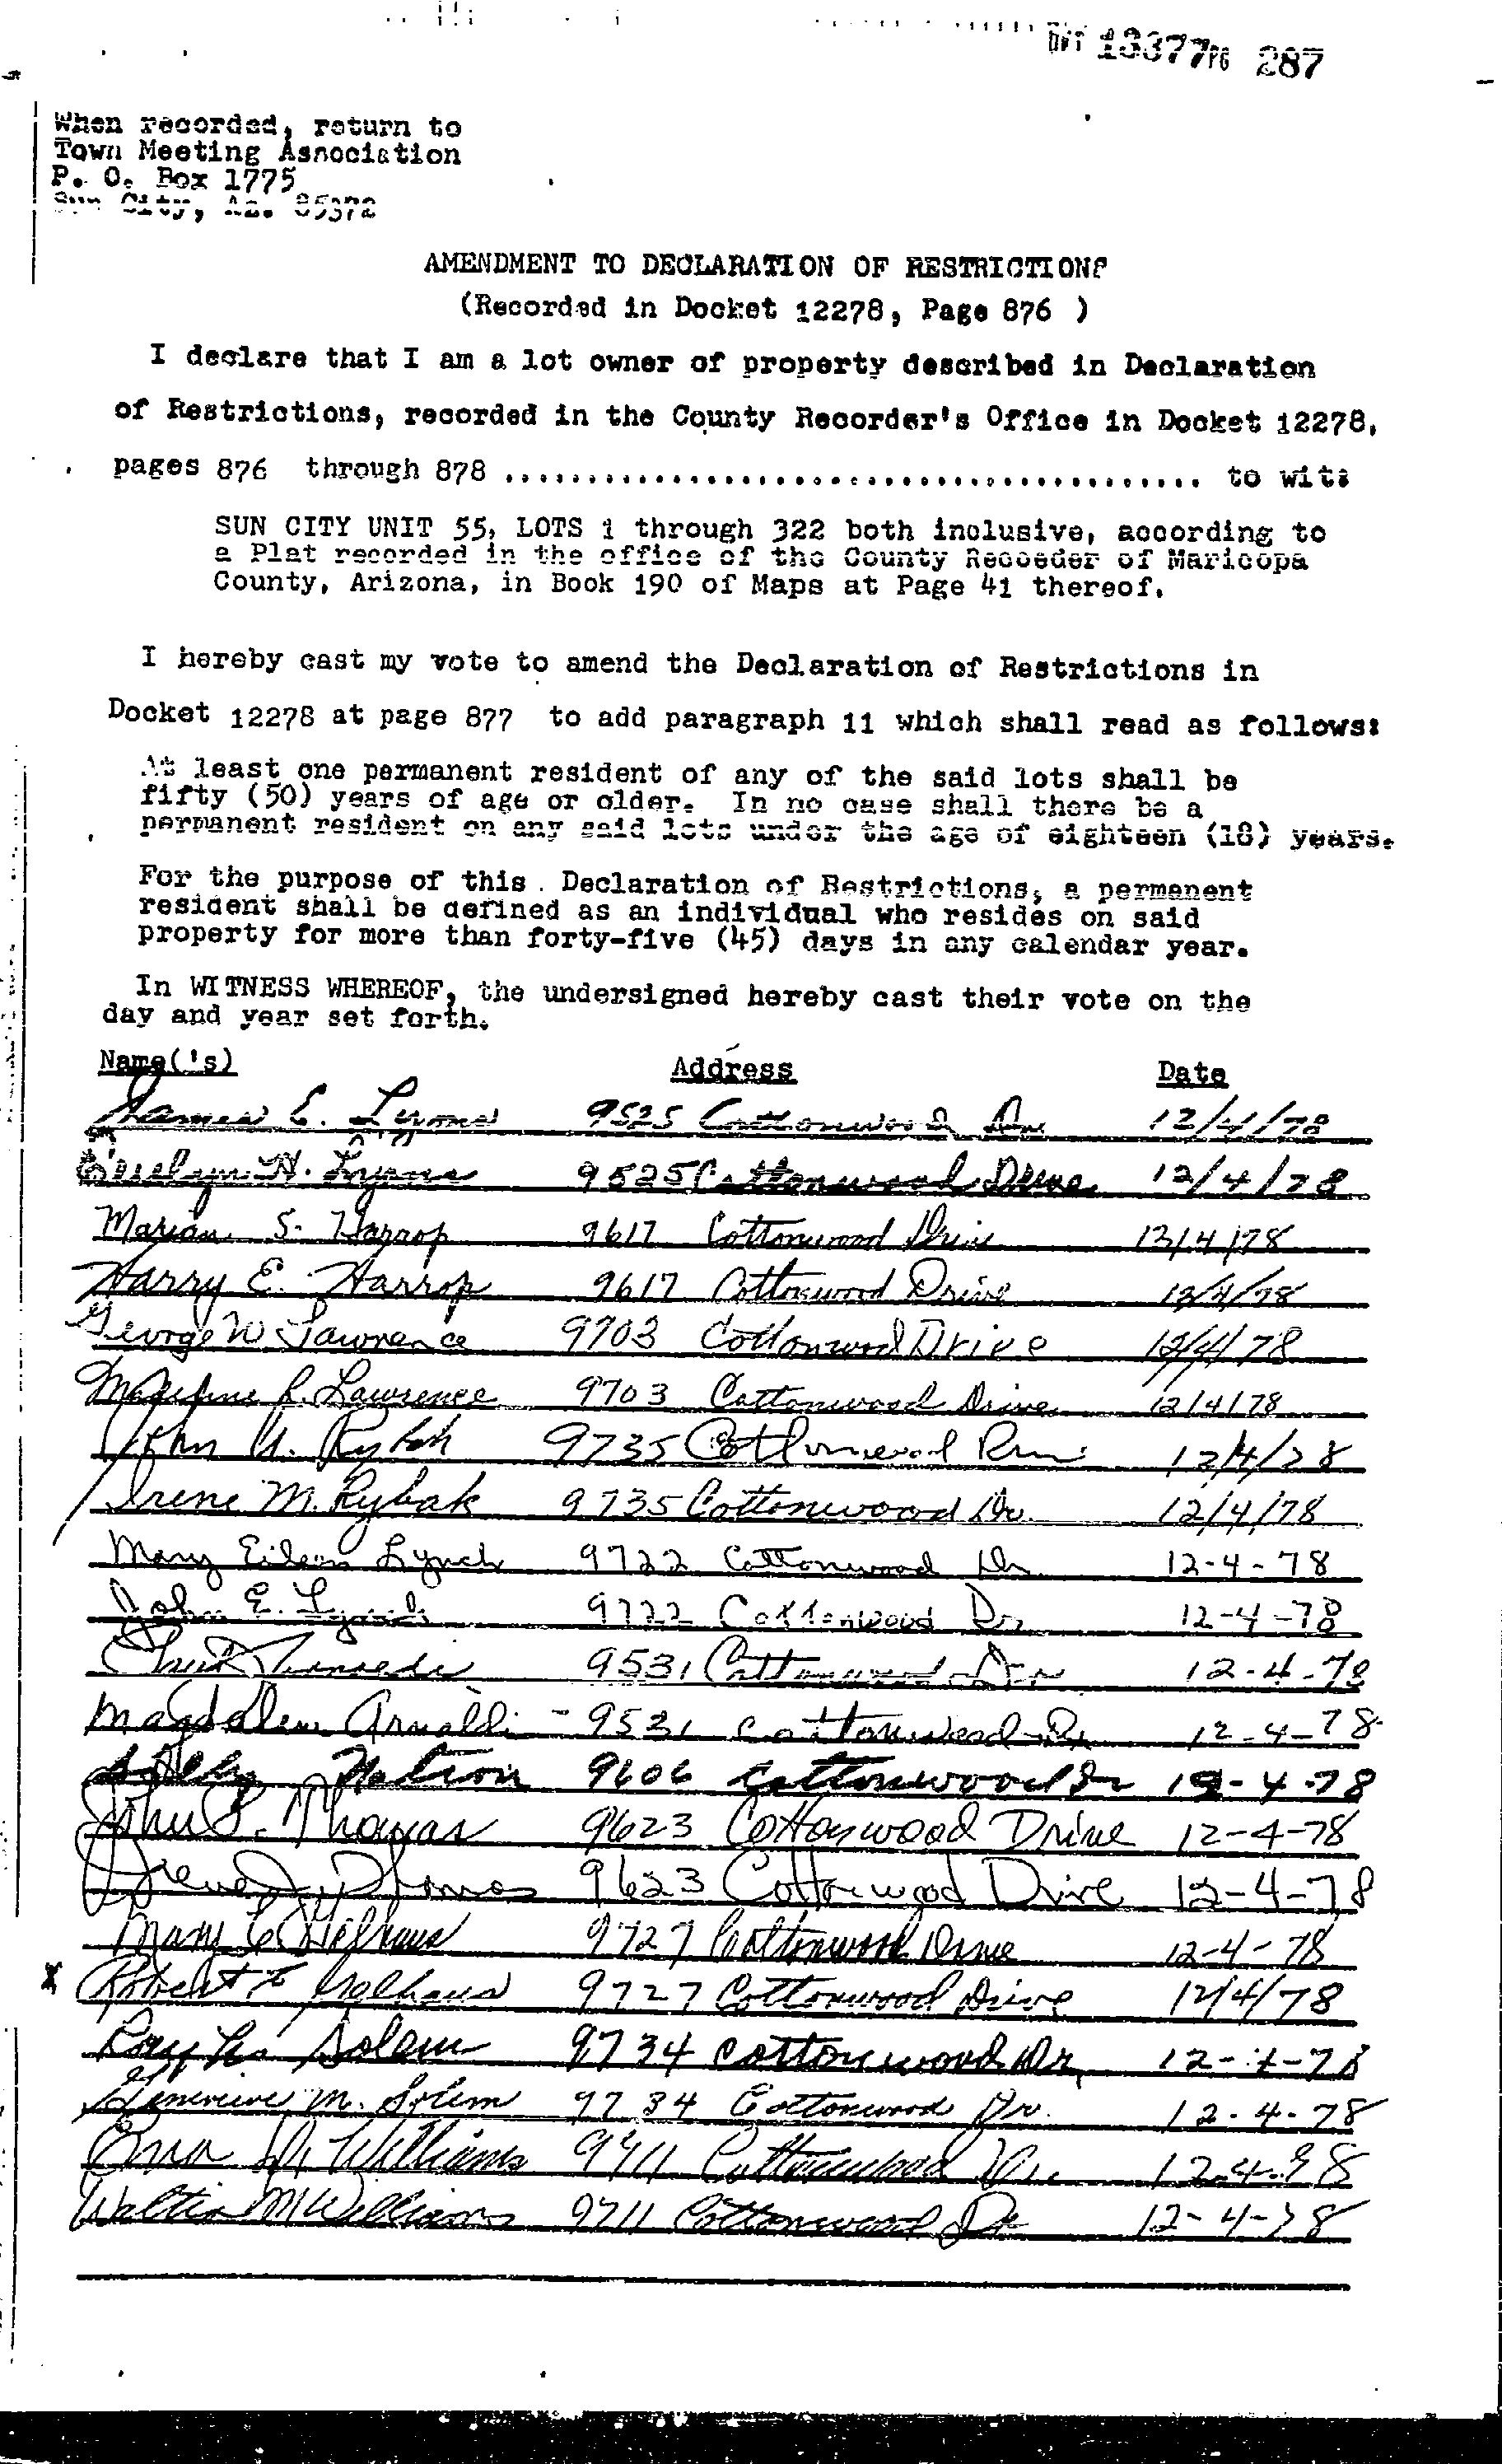 DKT 13377 PG 287
When recorded, return to
Town Meeting Association
P. O. Box 1775
Sun City, Az. 85372
AMENDMENT TO DECLARATION OF RESTRICTIONS
(Recorded in Docket 12278, Page 876 )
I declare that I am a lot owner of property described in Declaration
of Restrictions, recorded in the County Recorder's Office in Docket 12278,
pages 876 through 878 .......................................... to wit:
SUN CITY UNIT 55, LOTS 1 through 322 both inclusive, according to
a Plat recorded in the office of the County Recoeder of Maricopa
County, Arizona, in Book 190 of Maps at Page 41 thereof.
I hereby cast my vote to amend the Declaration of Restrictions in
Docket 12278 at page 877 to add paragraph 11 which shall read as follows:
At least one permanent resident of any of the said lots shall be
fifty (50) years of age or older. In no case shall there be a
permanent resident on any said lots under the age of eighteen (18) years.
For the purpose of this . Declaration of Restrictions, a permanent
resident shall be defined as an individual who resides on said
property for more than forty-five (45) days in any calendar year.
In WITNESS WHEREOF, the undersigned hereby cast their vote on the
day and year set forth.
Name('s) Address Date
James E. Lyons 9525 Cottonwood Dr 12/4/78
H. Lyons 9525 Cottonwood Drive 12/4/78
Marian S. Harrop 9617 Cottonwood Drive 12/4/78
Harry E. Harrop 9617 Cottonwood Drive 12/4/78
George W Lawrence 9703 Cottonwood Drive 12/4/78
R. Lawrence 9703 Cottonwood Drive 12/4/78
John A. Rybak 9735 Cottonwood 12/4/78
Irene M. Rybak 9735 Cottonwood Dr. 12/4/78
Mary Eileen Lynch 9722 Cottonwood Dr 12-4-78
John E. Lynch 9722 Cottonwood Dr 12-4-78
9531 Cottonwood Dr 12-4-78
Magdalen Arnaldi - 9531 Cottonwood Dr 12-4-78
Nelson 9606 Cottonwood Dr 12-4-78
John S. Thomas 9623 Cottonwood Drive 12-4-78
Irene J. Thomas 9623 Cottonwood Drive 12-4-78
Mary 9727 Cottonwood Drive 12-4-78
x Robert 9727 Cottonwood Drive 12/4/78
Roy Solem 9734 Cottonwood Dr. 12-4-78
Genevieve M. Solem 9734 Cottonwood Dr. 12-4-78
Williams 9711 Cottonwood Dr. 12-4-78
Walter M Williams 9711 Cottonwood Dr 12-4-78